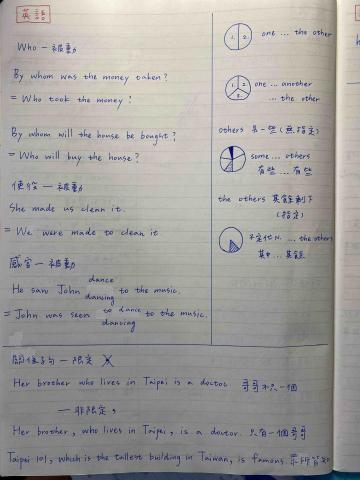 英語
Who — 被動
By whom was the money taken?
= Who took the money?
By whom will the house be bought?
= Who will buy the house?
使役 — 被動
She made us clean it.
= We were made to clean it
感官 — 被動
dance
He saw John dancing to the music.
= John was seen to dance to the music.
dancing
1. 2. one ... the other
one ... another
... the other
others 另一些 (無指定)
some ... others
有些 ... 有些
the others 其餘剩下
(指定)
不定代N. ... the others
其中 ... 其餘
關係子句 — 限定
Her brother who lives in Taipei is a doctor. 哥哥不只一個
— 非限定,
Her brother, who lives in Taipei, is a doctor. 只有一個哥哥
Taipei 101, which is the tallest building in Taiwan, is famous.